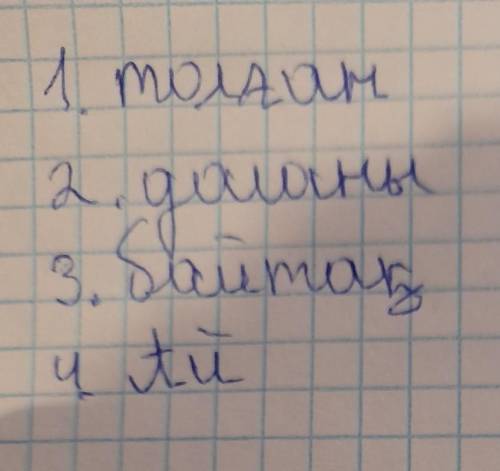 1. толған
2. даланы
3. байтақ
4 Ай